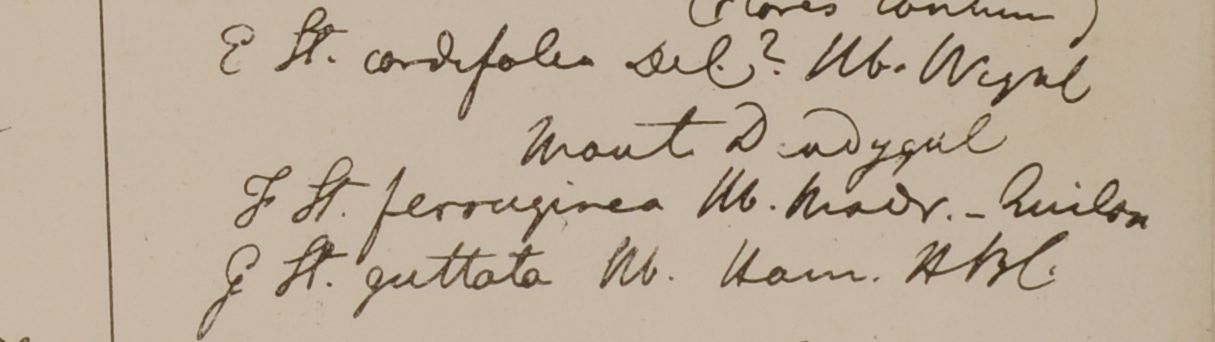 (flores
E St. cordifolia Del.? Hb. Wight
Mont Dindygul
F St. ferruginea Hb. Madr. - Quilon
G St. guttata Hb. Ham. HBC.